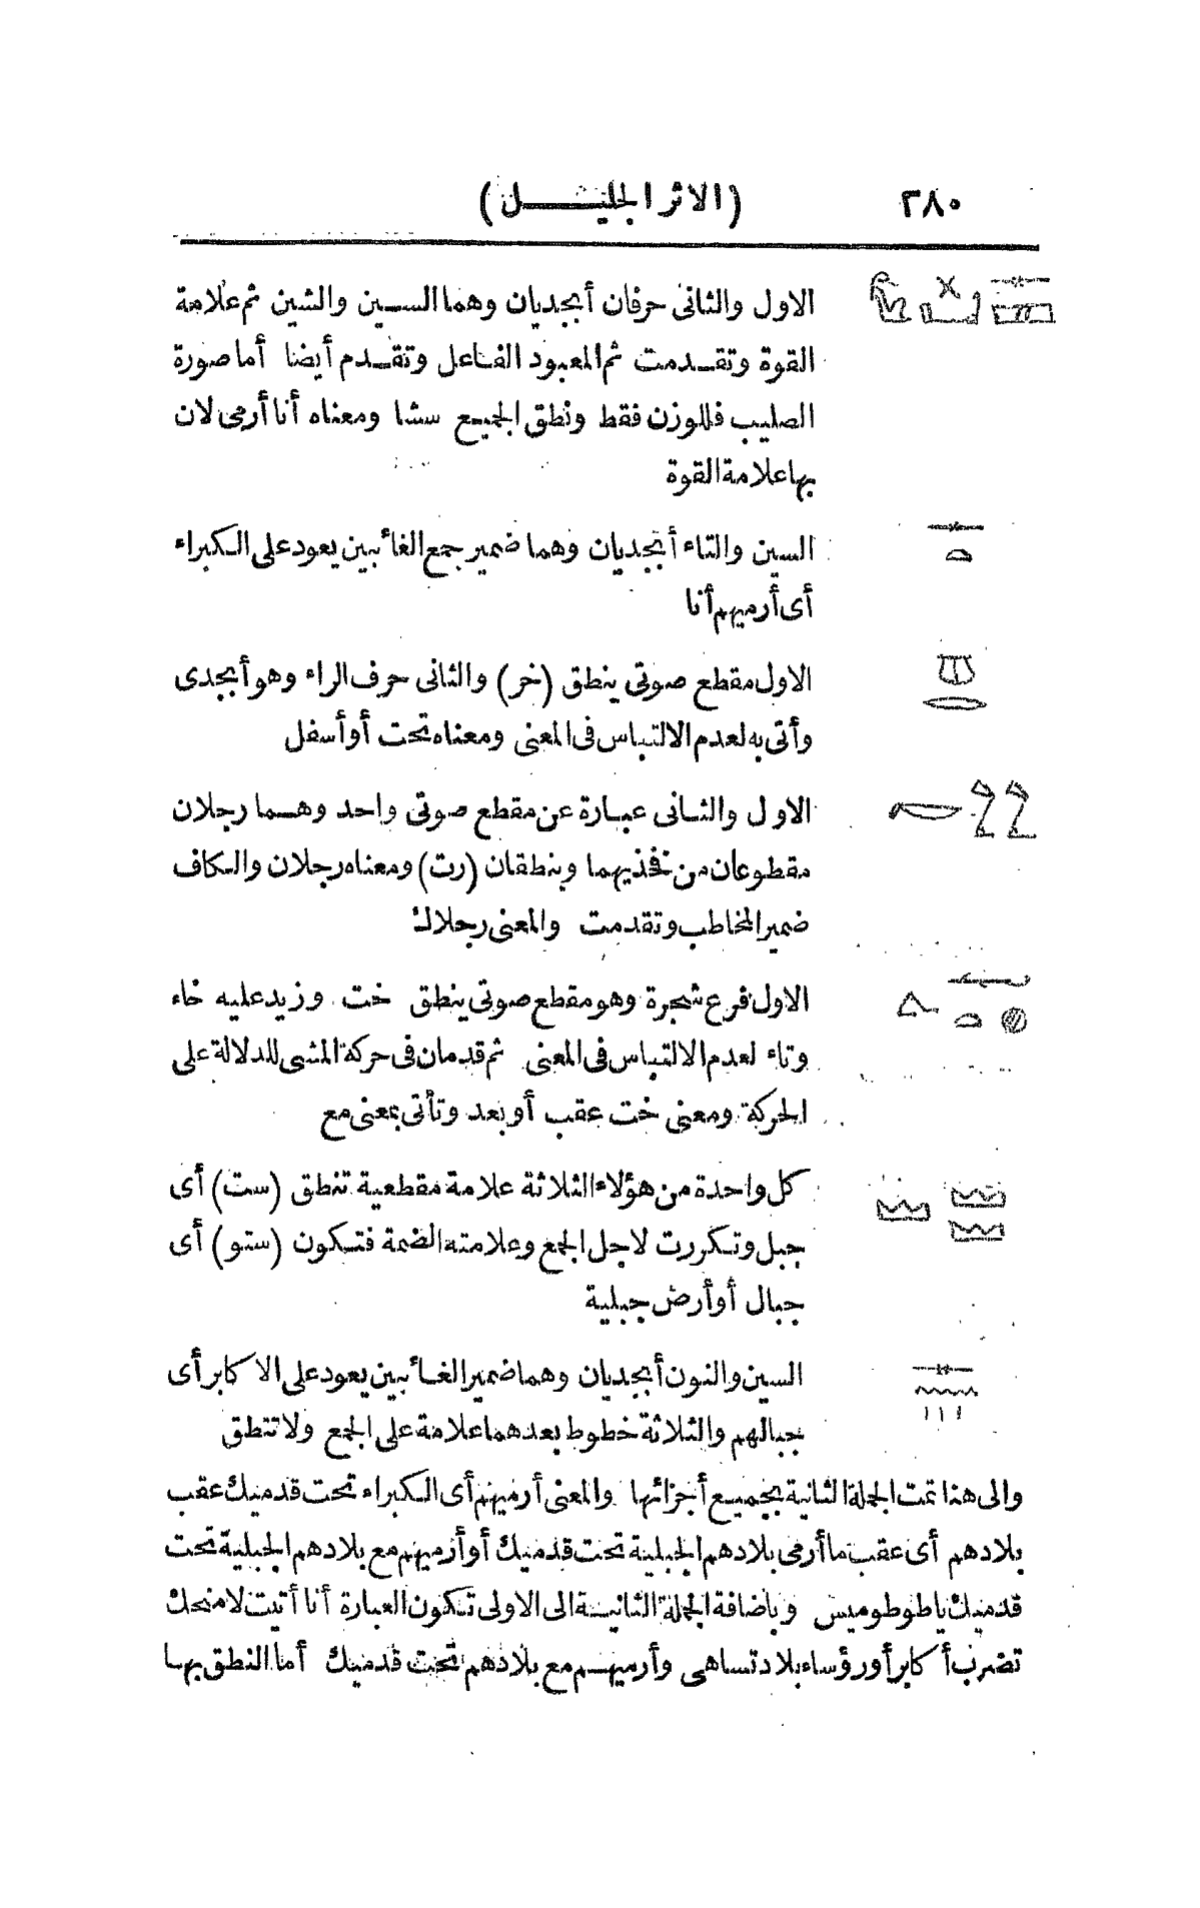 ٢٨٠
(الاثر الجليل)
الاول والثانى حرفان أبجديان وهما السين والشين ثم علامة
القوة وتقدمت ثم المعبود الفاعل وتقدم أيضا أما صورة
الصليب فللوزن فقط ونطق الجميع سشا ومعناه أنا أرمى لان
بها علامة القوة
السين والتاء أبجديان وهما ضمير جمع الغائبين يعود على الكبراء
أى أرميهم أنا
الاول مقطع صوتى ينطق (خر) والثانى حرف الراء وهو أبجدى
وأتى به لعدم الالتباس فى المعنى ومعناه تحت أو أسفل
الاول والثانى عبارة عن مقطع صوتى واحد وهما رجلان
مقطوعان من فخذيهما وينطقان (رت) ومعناه رجلان والكاف
ضمير المخاطب وتقدمت والمعنى رجلاك
الاول فرع شجرة وهو مقطع صوتى ينطق خت وزيد عليه خاء
وتاء لعدم الالتباس فى المعنى ثم قدمان فى حركة المشى للدلالة على
الحركة ومعنى خت عقب أو بعد وتأتى بمعنى مع
كل واحدة من هؤلاء الثلاثة علامة مقطعية تنطق (ست) أى
جبل وتكررت لاجل الجمع وعلامته الضمة فتكون (ستو) أى
جبال أو أرض جبلية
السين والنون أبجديان وهما ضمير الغائبين يعود على الاكابر أى
جبالهم والثلاثة خطوط بعدهما علامة على الجمع ولا تنطق
والى هذا تمت الجملة الثانية بجميع أجزائها والمعنى أرميهم أى الكبراء تحت قدميك عقب
بلادهم أى عقب ما أرمى بلادهم الجبلية تحت قدميك أو أرميهم مع بلادهم الجبلية تحت
قدميك يا طوطوميس وباضافة الجملة الثانية الى الاولى تكون العبارة أنا أتيت لامنحك
تضرب أكابر أو رؤساء بلاد تساهى وأرميهم مع بلادهم تحت قدميك أما النطق بها